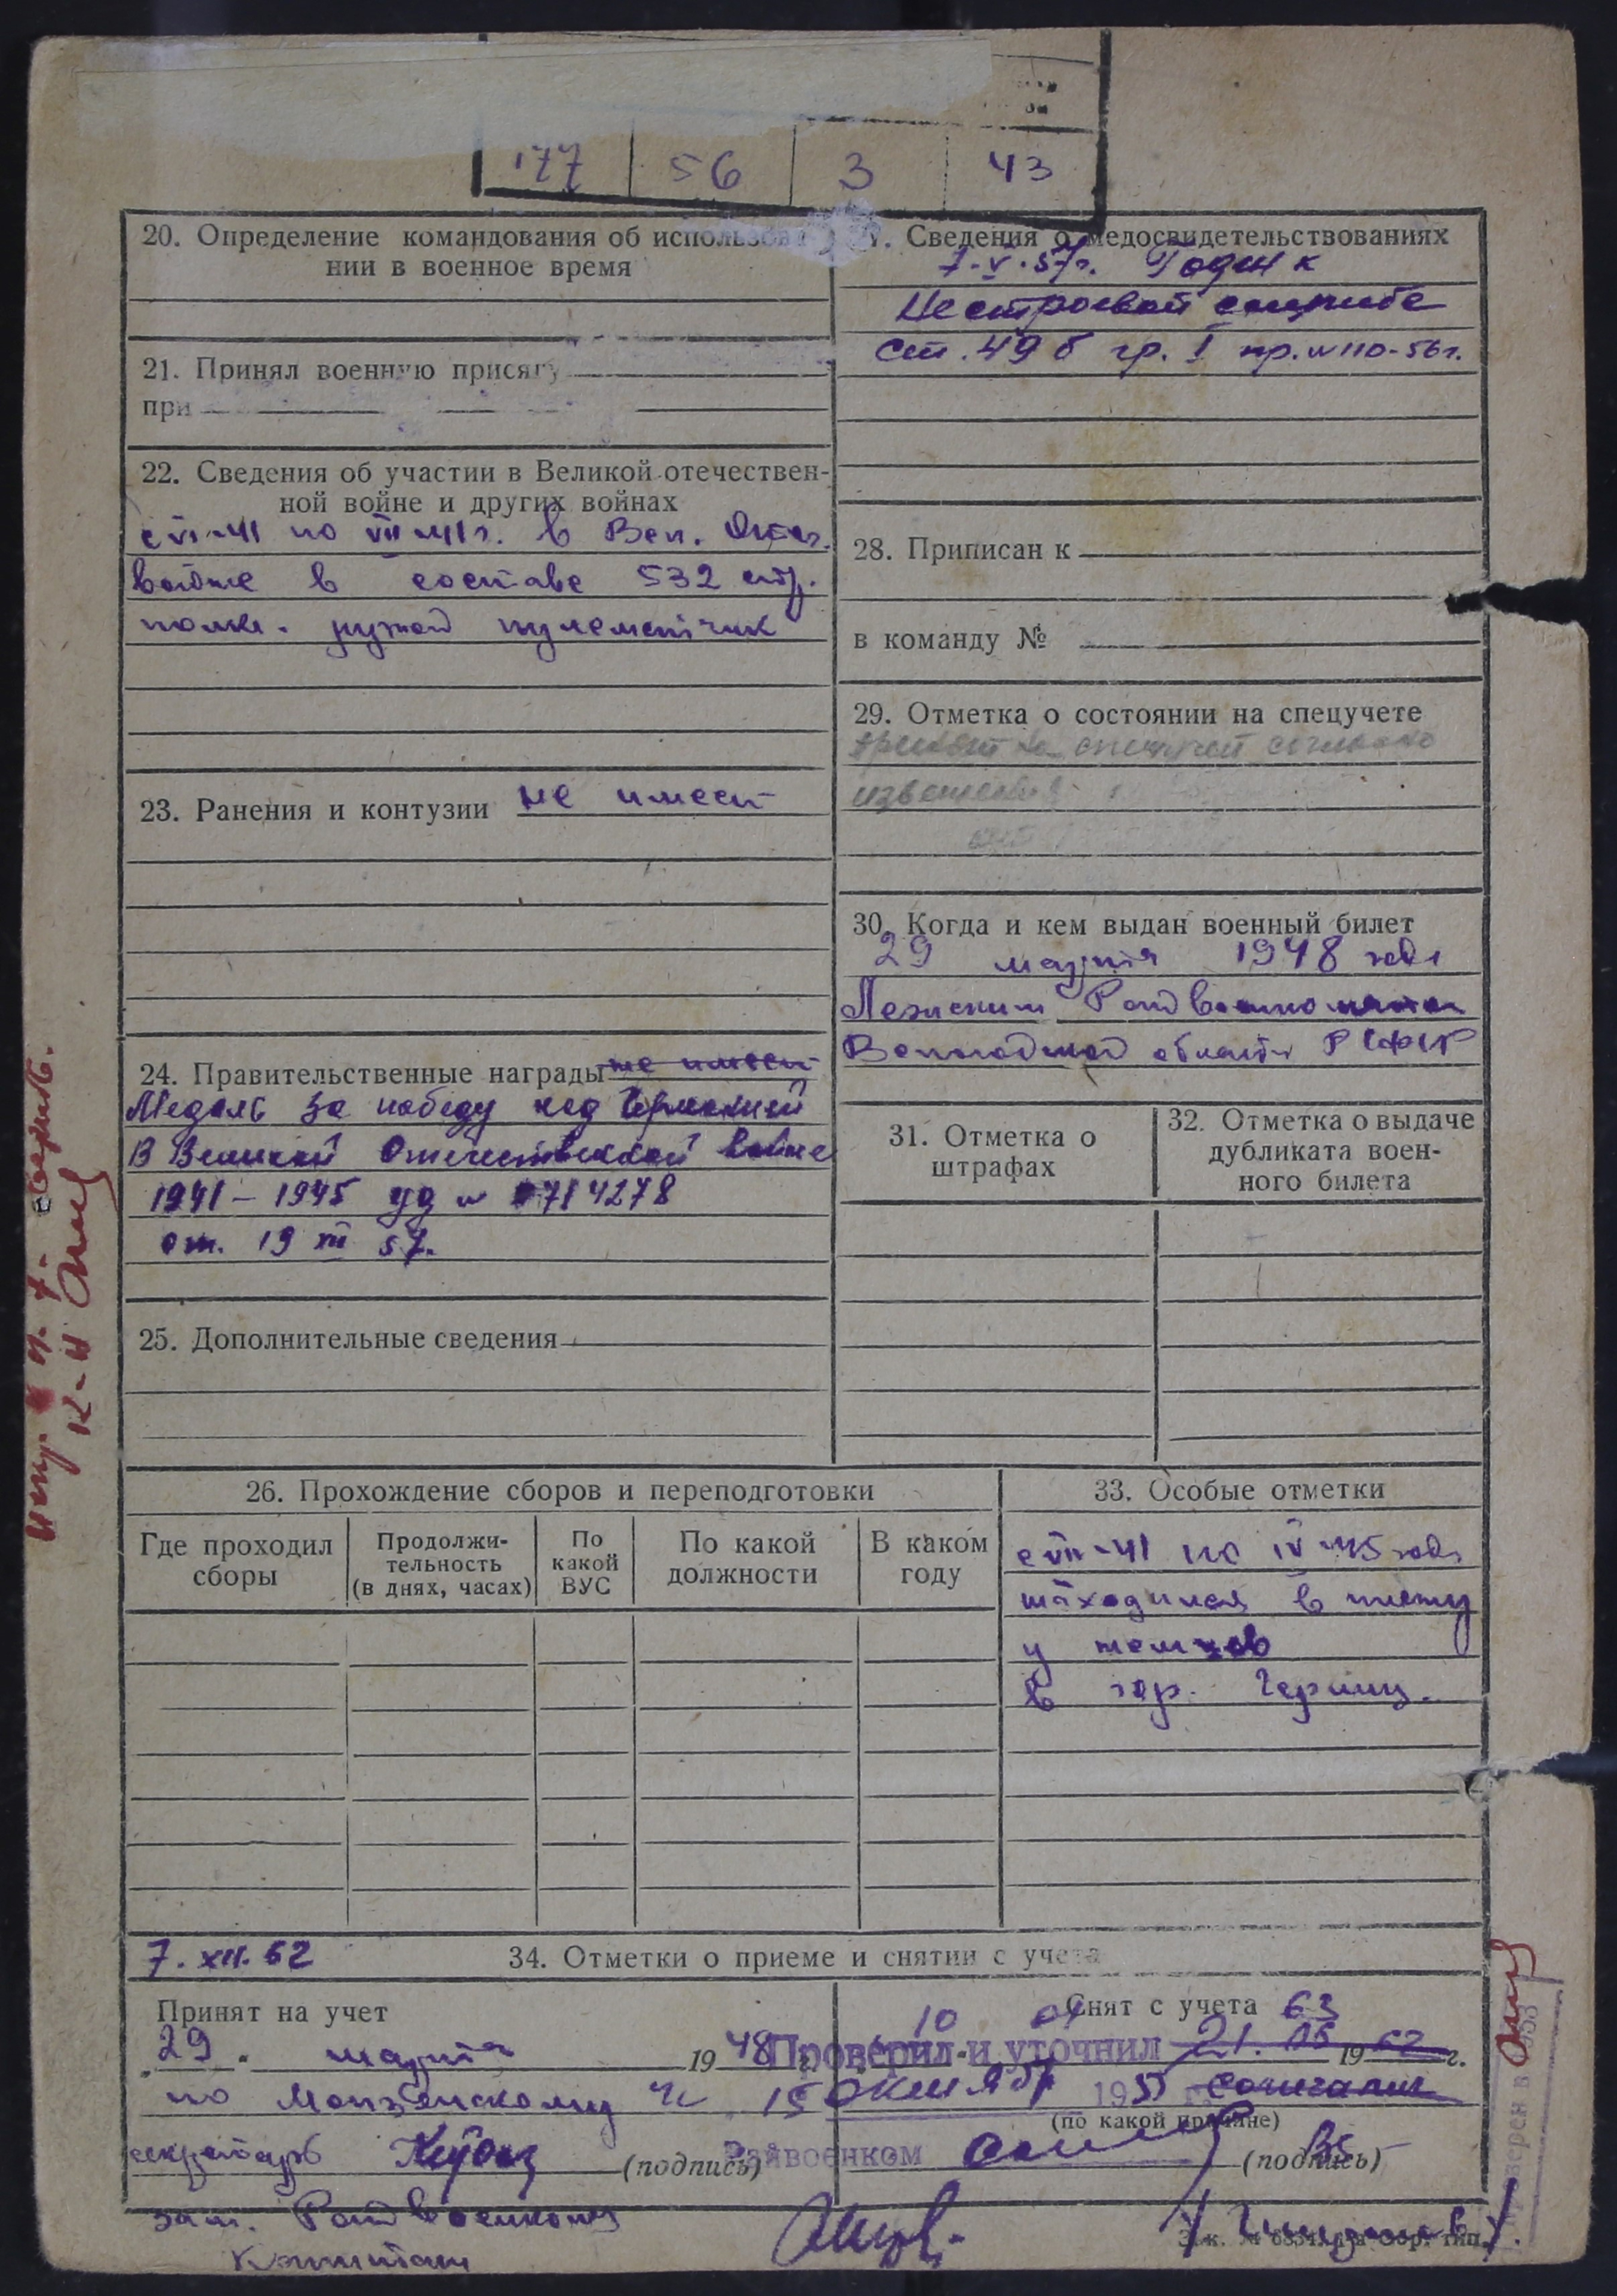 177 56 3 43
20. Определение командования об использова
нии в военное время
21. Принял военную присягу
при
22. Сведения об участии в Великой отечествен-
ной войне и других войнах
с VI-41 по VII-41 г. в Вел. Отеч.
войне в составе 532 стр.
полка. ручной пулеметчик
23. Ранения и контузии не имеет
24. Правительственные награды не имеет
Медаль за победу над Германией
В Великой Отечественной войне
1941 – 1945 уд № 0714278
от. 19 57.
25. Дополнительные сведения
7. Сведения о медосвидетельствованиях
7.V.57г. Годен к
Нестроевой службе
ст. 49 б гр. I пр. № 110-56г.
28. Приписан к
в команду №
29. Отметка о состоянии на спецучете
принят на спецучет согласно
извещения
30. Когда и кем выдан военный билет
29 марта 1948 года
Лежским Райвоенкоматом
Вологодской области РСФСР
31. Отметка о
штрафах
32. Отметка о выдаче
дубликата воен-
ного билета
26. Прохождение сборов и переподготовки
Где проходил
сборы
Продолжи-
тельность
(в днях, часах)
По
какой
ВУС
По какой
должности
В каком
году
33. Особые отметки
с VII-41 по IV-45 года
находился в плену
у немцев
в гор. Герлиц.
7. XII. 62
34. Отметки о приеме и снятии с учета
Принят на учет
„29" марта 1948 г.
по Монзенскому
секретарь (подпись)
зам. Райвоенкома
Капитан
Снят с учета 63
10 04
Проверил и уточнил 21. 05 1962 г.
15 октября 195
(по какой причине)
Райвоенком (подпись)